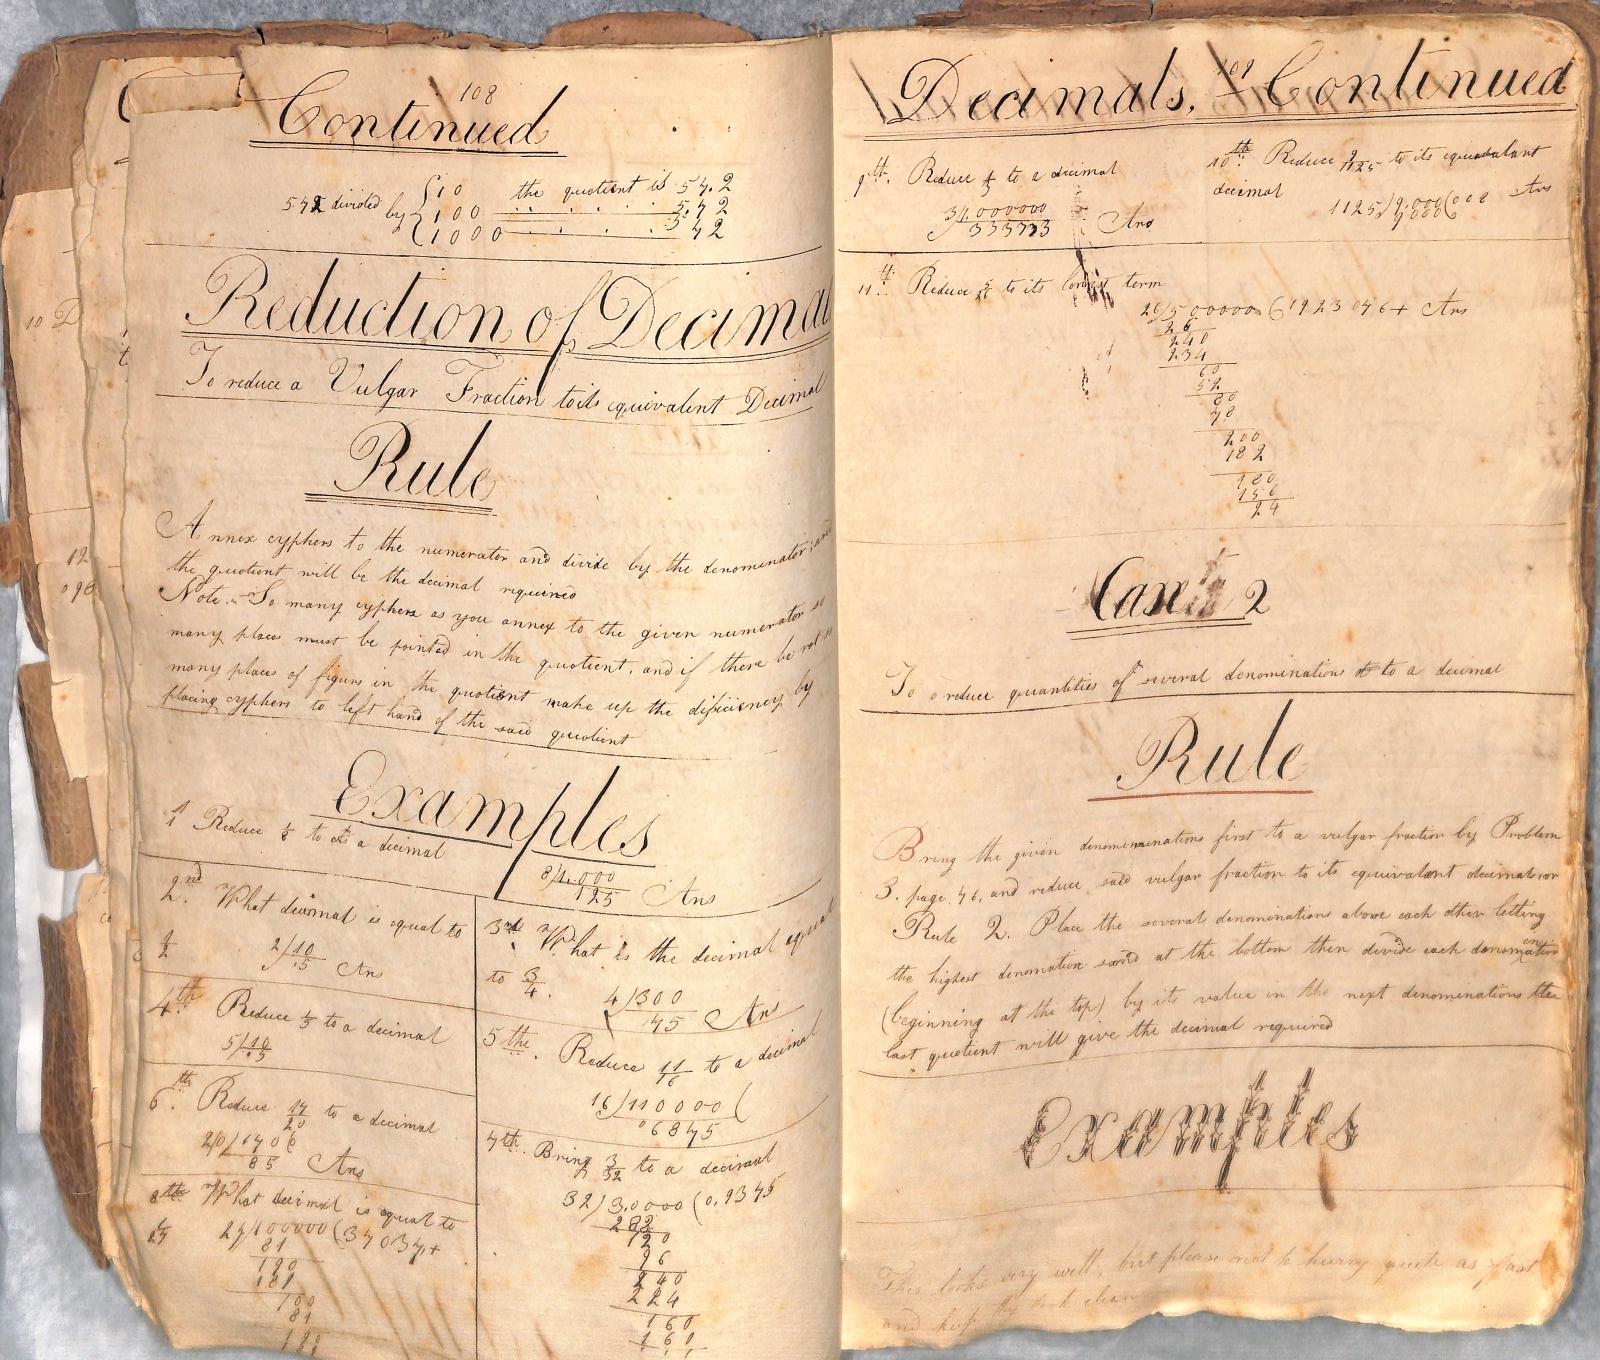 108
Continued
542 divided by 10 the quotient is 54.2
100 5.42
1000 542
Reduction of Decimal
To reduce a Vulgar Fraction to its equivalent Decimal
Rule
Annex cyphers to the numerator and divide by the denominator; and
the quotient will be the decimal required
Note. So many cyphers as you annex to the given numerator so
many places must be pointed in the quotient, and if there be not so
many places of figures in the quotient make up the dificiency by
placing cyphers to left hand of the said quotient
Examples
1 Reduce 1/8 to a decimal
8/1.000
125 Ans
2nd. What decimal is equal to
1/2 2/10
.5 Ans
3rd What is the decimal equal
to 3/4. 4/300
75 Ans
4th Reduce 1/5 to a decimal
5/10
5th. Reduce 11/16 to a decimal
16/110000(
06875
6th. Reduce 17/20 to a decimal
20/1700
85 Ans
7th. Bring 3/32 to a decimal
32)3.0000(0.9375
282
120
96
240
224
160
160
8th What decimal is equal to
1/27 27/100000(37037+
81
190
181
100
81
Decimals, 109 Continued
9th. Reduce 1/3 to a decimal
3/1.000000
333333 Ans
10th. Reduce 9/1125 to its equivalant
decimal
1125)9.000(008 Ans
9000
11th. Reduce 5/26 to its lowest term
26/500000(1923076+ Ans
26
240
234
60
52
80
78
200
182
180
156
24
Case 2
To reduce quantities of several denominations to a decimal
Rule
Bring the given denomenanations first to a vulgar fraction by Problem
3. page, 76, and reduce said vulgar fraction to its equivalent decimal; or
Rule 2. Place the several denominations above each other letting
the highest denomination stand at the bottom then divide each denomenation
(beginning at the top) by its value in the next denominations the
last quotient will give the decimal required
Examples
This looks very well, but please not to hurry quite as fast
and keep thy book clean